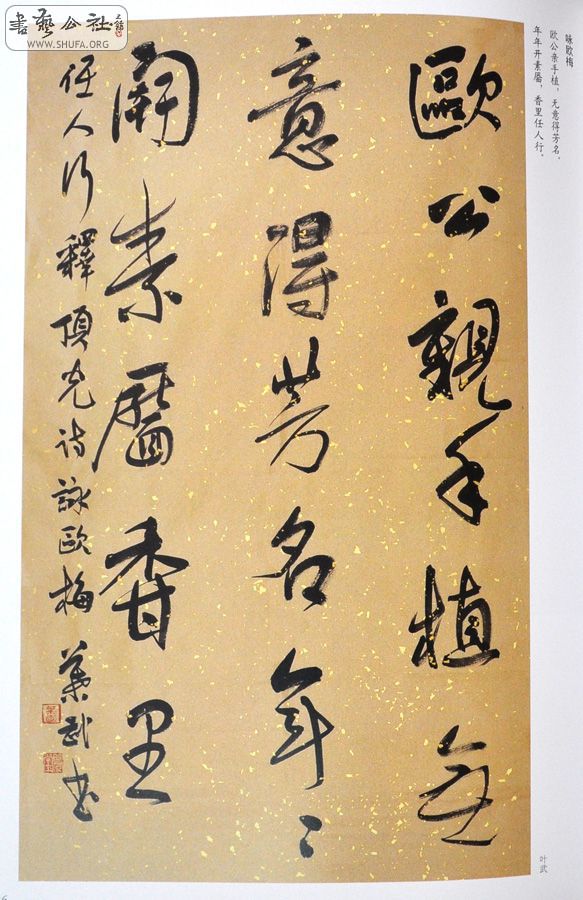 書藝公社
WWW.SHUFA.ORG
咏欧梅
欧公亲手植，无意得芳名。
年年开素靥，香里任人行。
歐公親手植無
意得芳名年〻
開素靨香里
任人行釋頂光詩詠歐梅葉武書
叶武